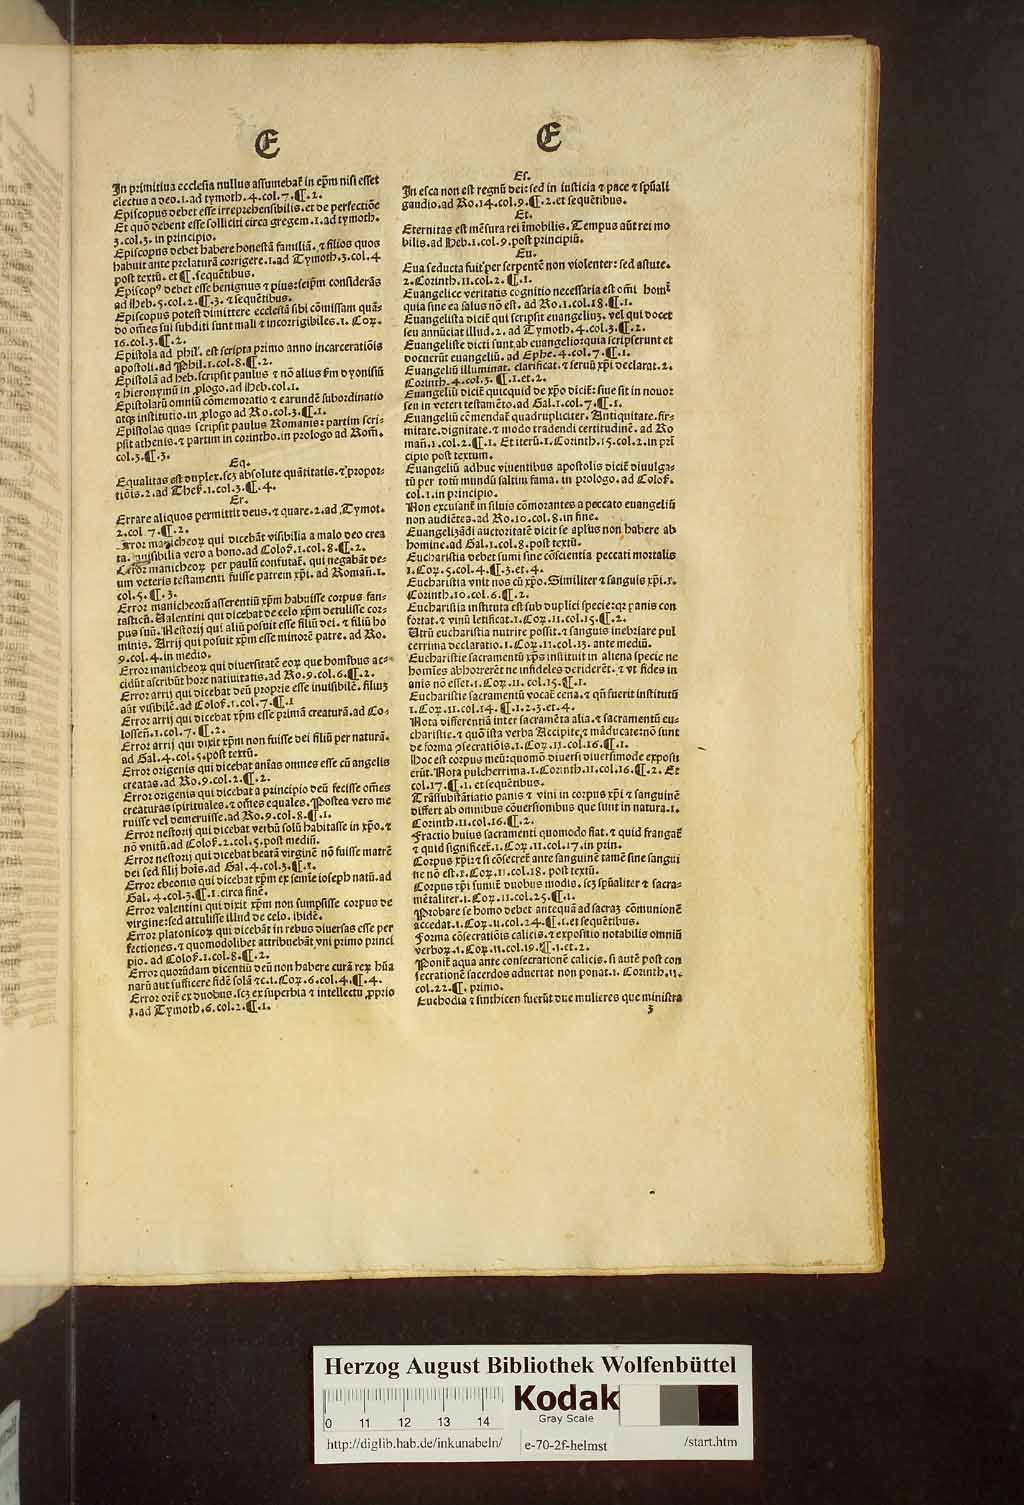 E
In primitiua ecclesia nullus assumebat᷑ in ep̄m nisi esset
electus a deo.1.ad tymoth.4.col.7.¶.2.
Episcopus debet esse irreprehensibilis.et de perfectiōe
Et quō debent esse solliciti circa gregem.1.ad tymoth.
3.col.3.in principio.
Episcopus debet habere honestā familiā.⁊ filios quos
habuit ante prelaturā corrigere.1.ad Tymoth.3.col.4
post textū.et ¶.sequētibus.
Episcopꝰ debet esse benignus ⁊ pius:seip̄m considerās
ad Heb.5.col.2.¶.3.⁊ sequētibus.
Episcopus potest dimittere ecclesiā sibi cōmissam quā-
do om̄es sui subditi sunt mali ⁊ incorrigibiles.1.Coꝝ.
16.col.3.¶.2.
Epistola ad phil'.est scripta primo anno incarceratiōis
apostoli.ad Phil.1.col.8.¶.2.
Epistolā ad heb.scripsit paulus ⁊ nō alius ẜm dyonisiū
⁊ hieronymū in ꝓlogo.ad Heb.col.1.
Epistolarū omniū cōmemoratio ⁊ earundē subordinatio
atqꝫ institutio.in ꝓlogo ad Ro.col.3.¶.1.
Epistolas quas scripsit paulus Romanis:partim scri-
psit athenis.⁊ partim in corintho.in prologo ad Rom̄.
col.3.¶.3.
Eq.
Equalitas est duplex.scꝫ absolute quātitatis.⁊ propor-
tiōis.2.ad Thes.1.col.3.¶.4.
Er.
Errare aliquos permittit deus.⁊ quare.2.ad Tymot.
2.col.7.¶.2.
Error manicheoꝝ qui dicebāt visibilia a malo deo crea
ta.inuisibilia vero a bono.ad Colos.1.col.8.¶.2.
Error manicheoꝝ per paulū confutat᷑.qui negabāt de-
um veteris testamenti fuisse patrem xp̄i.ad Romañ.1.
col.5.¶.3.
Error manicheorū asserentiū xp̄m habuisse corpus fan-
tasticū.Ualentini qui dicebat de celo xp̄m detulisse cor-
pus suū.Nestorij qui aliū posuit esse filiū dei.⁊ filiū ho
minis.Arrij qui posuit xp̄m esse minorē patre.ad Ro.
9.col.4.in medio.
Error manicheoꝝ qui diuersitatē eoꝝ que hom̄ibus ac-
cidūt ascribūt hore natiuitatis.ad Ro.9.col.6.¶.2.
Error arrij qui dicebat deū proprie esse inuisibilē.filiuꝫ
aūt visibilē.ad Colos.1.col.7.¶.1
Error arrij qui dicebat xp̄m esse primā creaturā.ad Co-
losseñ.1.col.7.¶.2.
Error arrij qui dixit xp̄m non fuisse dei filiū per naturā.
ad Gal.4.col.5.post textū.
Error origenis qui dicebat aīas omnes esse cū angelis
creatas.ad Ro.9.col.2.¶.2.
Error origenis qui dicebat a principio deū fecisse om̄es
creaturas spirituales.⁊ om̄es equales.Postea vero me
ruisse vel demeruisse.ad Ro.9.col.8.¶.1.
Error nestorij qui dicebat verbū solū habitasse in xp̄o.⁊
nō vnitū.ad Colos.2.col.5.post mediū.
Error nestorij qui dicebat beatā virginē nō fuisse matrē
dei sed filij hoīs.ad Gal.4.col.3.¶.1.
Error ebeonis qui dicebat xp̄m ex semīe ioseph natū.ad
Gal.4.col.3.¶.1.circa finē.
Error valentini qui dixit xp̄m non sumpsisse corpus de
virgine:sed attulisse illud de celo.ibidē.
Error platonicoꝝ qui dicebāt in rebus diuersas esse per
fectiones.⁊ quomodolibet attribuebāt vni primo princi
pio.ad Colos.1.col.8.¶.2.
Error quorūdam dicentiū deū non habere curā reꝝ hūa
narū aut sufficere fidē solā ⁊c.1.Coꝝ.6.col.4.¶.4.
Error orit᷑ ex duobus.scꝫ ex superbia ⁊ intellectu ꝓprio
1.ad Tymoth.6.col.2.¶.1.
E
Es.
In esca non est regnū dei:sed in iusticia ⁊ pace ⁊ sp̄uali
gaudio.ad Ro.14.col.9.¶.2.et sequētibus.
Et.
Eternitas est mēsura rei īmobilis.Tempus aūt rei mo
bilis.ad Heb.1.col.9.post principiū.
Eu.
Eua seducta fuit per serpentē non violenter:sed astute.
2.Corinth.11.col.2.¶.1.
Euangelice veritatis cognitio necessaria est om̄i homī
quia sine ea salus nō est.ad Ro.1.col.18.¶.1.
Euangelista dicit᷑ qui scripsit euangeliuꝫ.vel qui docet
seu annūciat illud.2.ad Tymoth.4.col.3.¶.2.
Euangeliste dicti sunt ab euangelio:quia scripserunt et
docuerūt euangeliū.ad Ephe.4.col.7.¶.1.
Euangeliū illuminat.clarificat.⁊ seruū xp̄i declarat.2.
Corinth.4.col.3.¶.1.et.2.
Euangeliū dicit᷑ quicquid de xp̄o dicit᷑:siue sit in nouo:
seu in veteri testamēto.ad Gal.1.col.7.¶.1.
Euangeliū cōmendat᷑ quadrupliciter.Antiquitate.fir-
mitate.dignitate.⁊ modo tradendi certitudinē.ad Ro
mañ.1.col.2.¶.1.Et iterū.1.Corinth.15.col.2.in prī
cipio post textum.
Euangeliū adhuc viuentibus apostolis dicit᷑ diuulga-
tū per totū mundū saltim fama.in prologo.ad Colos.
col.1.in principio.
Non excusant᷑ in siluis cōmorantes a peccato euangeliū
non audiētes.ad Ro.10.col.8.in fine.
Euangelizādi auctoritatē dicit se ap̄lus non habere ab
homine.ad Gal.1.col.8.post textū.
Eucharistia debet sumi sine cōscientia peccati mortalis
1.Coꝝ.5.col.4.¶.3.et.4.
Eucharistia vnit nos cū xp̄o.Similiter ⁊ sanguis xp̄i.1.
Corinth.10.col.6.¶.2.
Eucharistia instituta est sub duplici specie:qꝛ panis con
fortat.⁊ vinū letificat.1.Coꝝ.11.col.15.¶.2.
Utrū eucharistia nutrire possit.⁊ sanguis inebriare pul
cerrima declaratio.1.Coꝝ.11.col.13.ante mediū.
Eucharistie sacramentū xp̄s instituit in aliena specie ne
homīes abhorrerēt ne infideles deriderēt.⁊ vt fides in
anis nō esset.1.Coꝝ.11.col.15.¶.1.
Eucharistie sacramentū vocat᷑ cena.⁊ qn̄ fuerit institutū
1.Coꝝ.11.col.14.¶.1.2.3.et.4.
Nota differentiā inter sacramēta alia.⁊ sacramentū eu-
charistie.⁊ quō ista verba Accipite.⁊ māducate:nō sunt
de forma ꝯsecratiōis.1.Coꝝ.11.col.16.¶.1.
Hoc est corpus meū:quomō diuersi diuersimode exposi
erūt.Nota pulcherrima.1.Corinth.11.col.16.¶.2.Et
col.17.¶.1.et sequētibus.
Trāssubstātiatio panis ⁊ vini in corpus xp̄i ⁊ sanguinē
differt ab omnibus cōuersionibus que sunt in natura.1.
Corinth.11.col.16.¶.2.
Fractio huius sacramenti quomodo fiat.⁊ quid frangat᷑
⁊ quid significet᷑.1.Coꝝ.11.col.17.in prin.
Corpus xp̄i:⁊ si cōsecret᷑ ante sanguinē tamē sine sangui
ne nō est.1.Coꝝ.11.col.18.post textū.
Corpus xp̄i sumit᷑ duobus modis.scꝫ sp̄ualiter ⁊ sacra-
mētaliter.1.Coꝝ.11.col.25.¶.1.
Probare se homo debet antequā ad sacraꝫ cōmunionē
accedat.1.Coꝝ.11.col.24.¶.1.et sequētibus.
Forma cōsecratiōis calicis.⁊ expositio notabilis omniū
verboꝝ.1.Coꝝ.11.col.19.¶.1.et.2.
Ponit᷑ aqua ante consecrationē calicis.si autē post con
secrationē sacerdos aduertat non ponat.1.Corinth.11.
col.22.¶.primo.
Euchodia ⁊ sinthicen fuerūt due mulieres que ministra
3
Herzog August Bibliothek Wolfenbüttel
0 11 12 13 14
Kodak
Gray Scale
http://diglib.hab.de/inkunabeln/ e-70-2f-helmst /start.htm